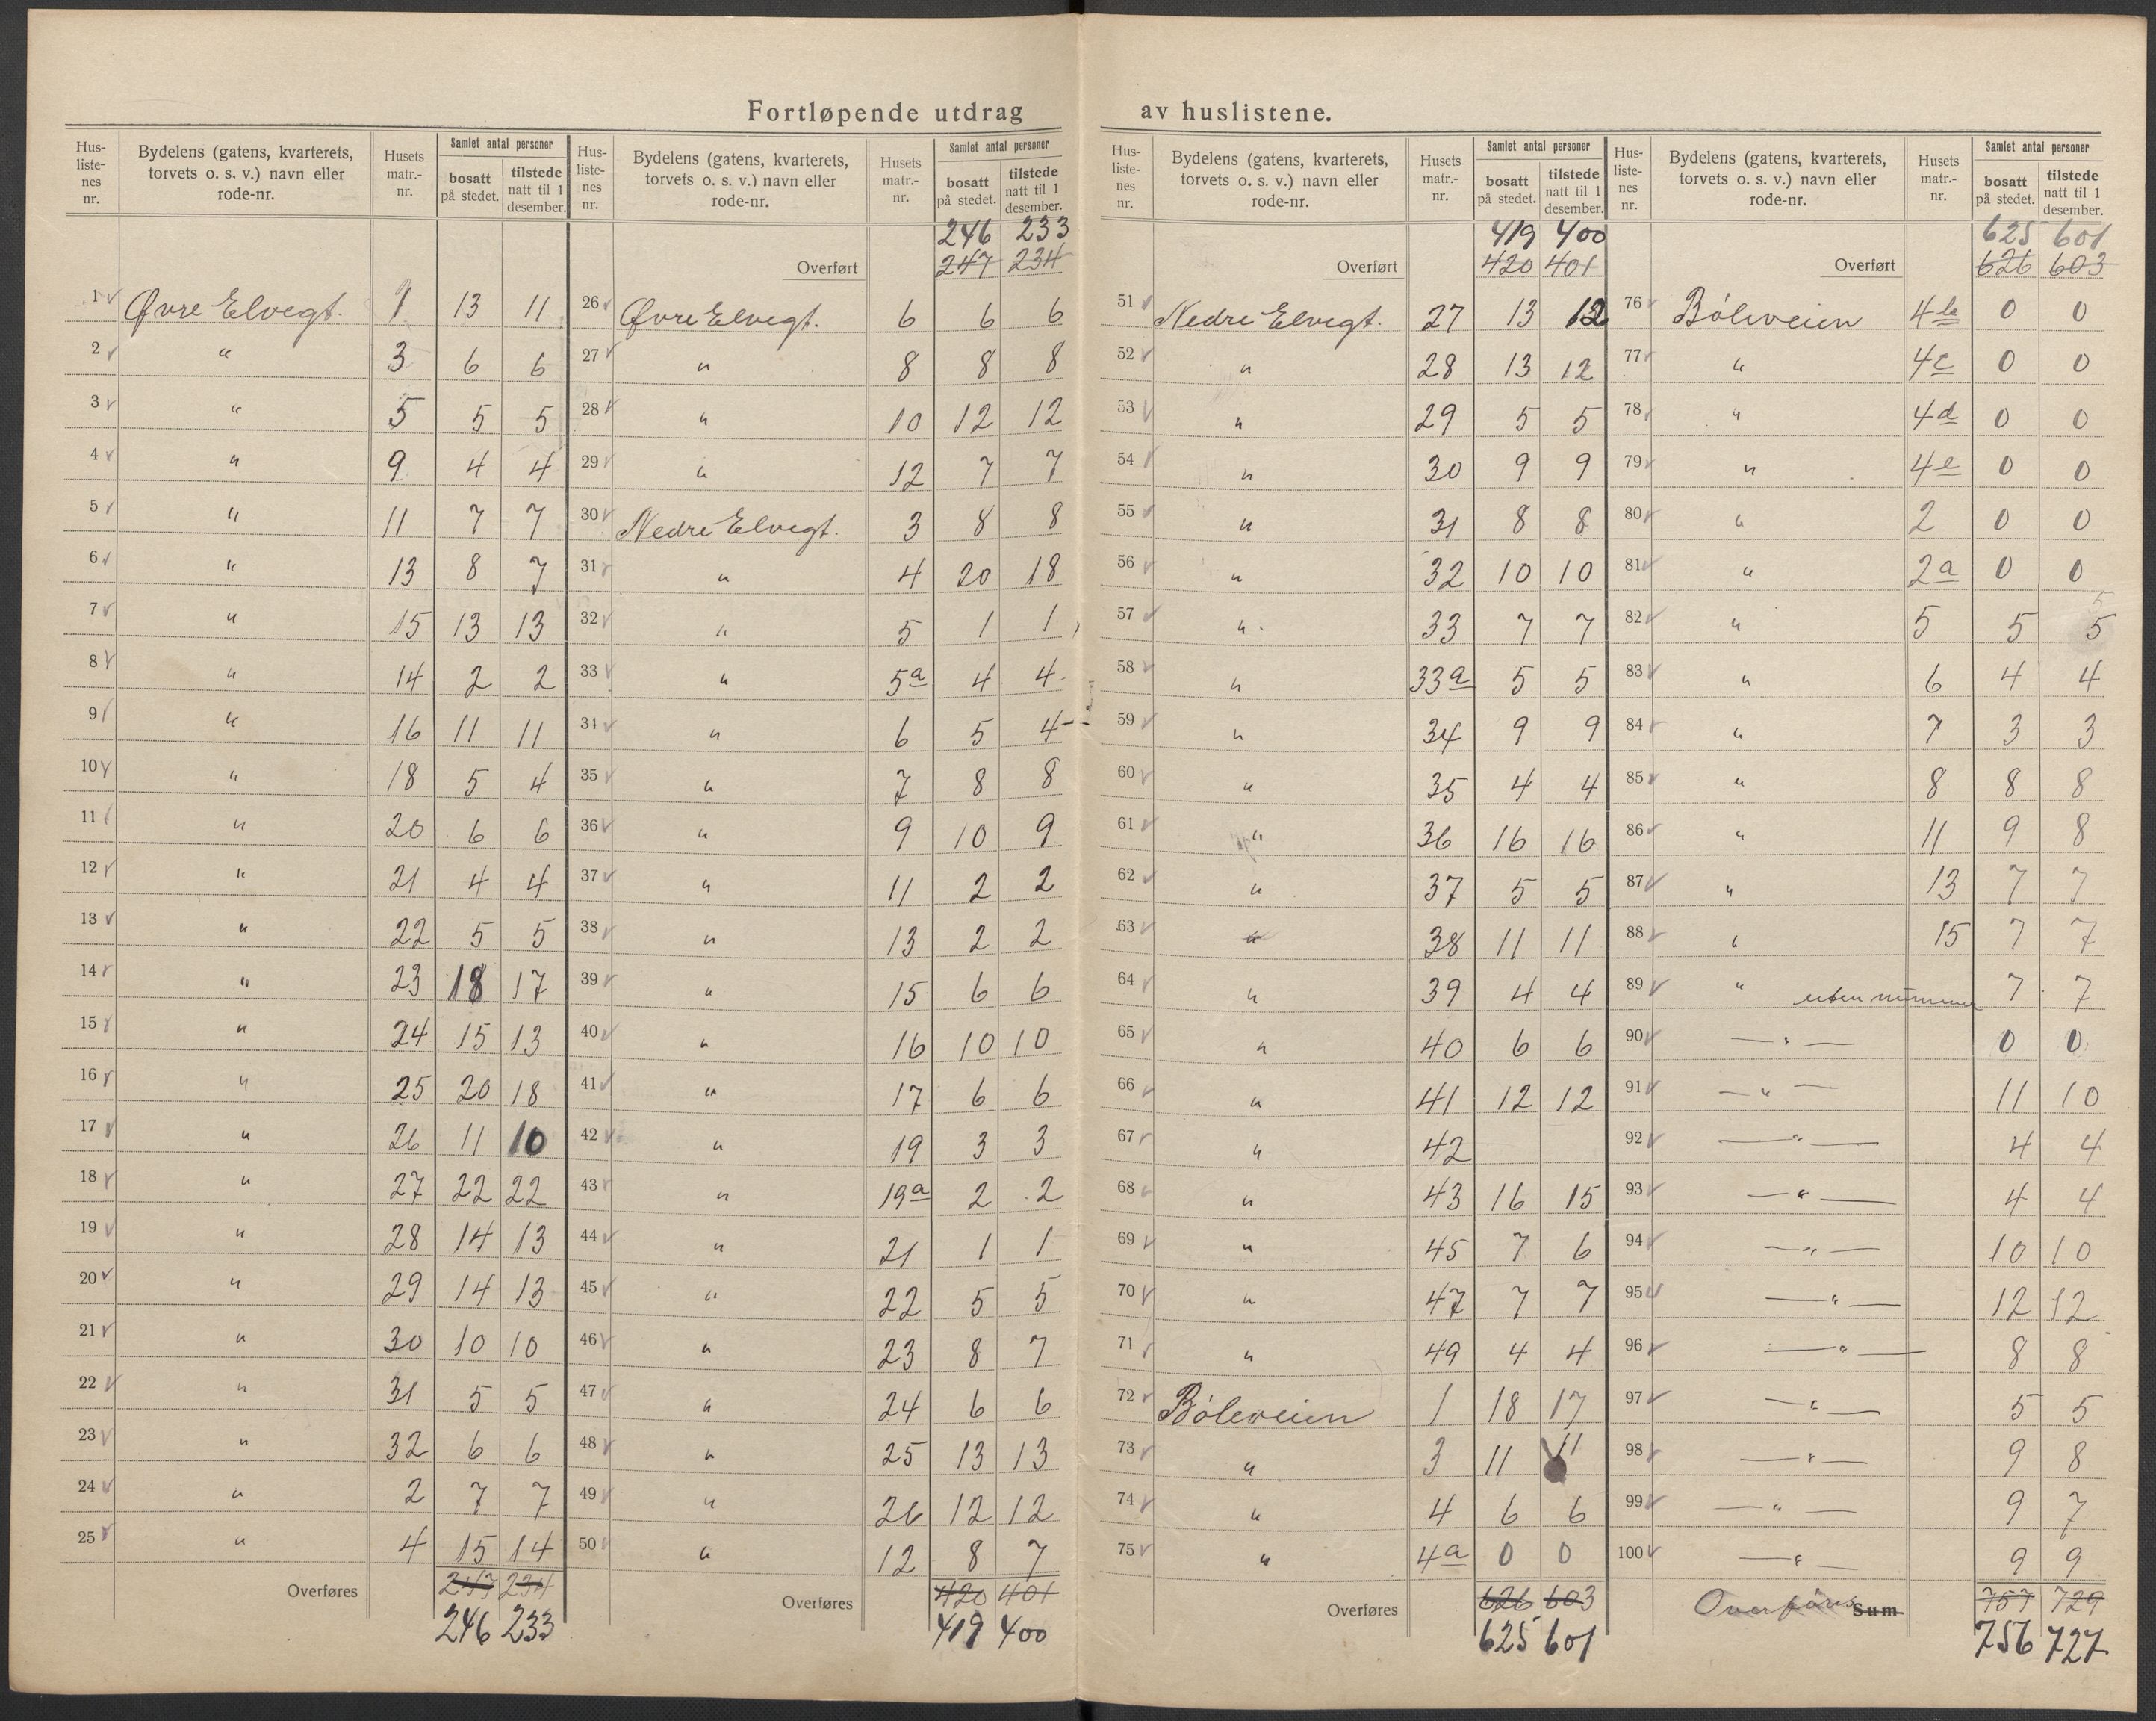 Fortløpende utdrag av huslistene.
Hus-listenes nr. Bydelens (gatens, kvarterets, torvets o. s. v.) navn eller rode-nr. Husets matr.-nr. Samlet antal personer bosatt på stedet. tilstede natt til 1 desember.
1 Øvre Elvegt. 1 13 11
2 " 3 6 6
3 " 5 5 5
4 " 9 4 4
5 " 11 7 7
6 " 13 8 7
7 " 15 13 13
8 " 14 2 2
9 " 16 11 11
10 " 18 5 4
11 " 20 6 6
12 " 21 4 4
13 " 22 5 5
14 " 23 18 17
15 " 24 15 13
16 " 25 20 18
17 " 26 11 10
18 " 27 22 22
19 " 28 14 13
20 " 29 14 13
21 " 30 10 10
22 " 31 5 5
23 " 32 6 6
24 " 2 7 7
25 " 4 15 14
Overføres 247 234
246 233
Hus-listenes nr. Bydelens (gatens, kvarterets, torvets o. s. v.) navn eller rode-nr. Husets matr.-nr. Samlet antal personer bosatt på stedet. tilstede natt til 1 desember.
246 233
Overført 247 234
26 Øvre Elvegt. 6 6 6
27 " 8 8 8
28 " 10 12 12
29 " 12 7 7
30 Nedre Elvegt. 3 8 8
31 " 4 20 18
32 " 5 1 1
33 " 5a 4 4
34 " 6 5 4
35 " 7 8 8
36 " 9 10 9
37 " 11 2 2
38 " 13 2 2
39 " 15 6 6
40 " 16 10 10
41 " 17 6 6
42 " 19 3 3
43 " 19a 2 2
44 " 21 1 1
45 " 22 5 5
46 " 23 8 7
47 " 24 6 6
48 " 25 13 13
49 " 26 12 12
50 " 12 8 7
Overføres 420 401
419 400
Hus-listenes nr. Bydelens (gatens, kvarterets, torvets o. s. v.) navn eller rode-nr. Husets matr.-nr. Samlet antal personer bosatt på stedet. tilstede natt til 1 desember.
419 400
Overført 420 401
51 Nedre Elvegt. 27 13 12
52 " 28 13 12
53 " 29 5 5
54 " 30 9 9
55 " 31 8 8
56 " 32 10 10
57 " 33 7 7
58 " 33a 5 5
59 " 34 9 9
60 " 35 4 4
61 " 36 16 16
62 " 37 5 5
63 " 38 11 11
64 " 39 4 4
65 " 40 6 6
66 " 41 12 12
67 " 42
68 " 43 16 15
69 " 45 7 6
70 " 47 7 7
71 " 49 4 4
72 Bøleveien 1 18 17
73 " 3 11 11
74 " 4 6 6
75 " 4a 0 0
Overføres 626 603
625 601
Hus-listenes nr. Bydelens (gatens, kvarterets, torvets o. s. v.) navn eller rode-nr. Husets matr.-nr. Samlet antal personer bosatt på stedet. tilstede natt til 1 desember.
625 601
Overført 626 603
76 Bøleveien 4b 0 0
77 " 4c 0 0
78 " 4d 0 0
79 " 4e 0 0
80 " 2 0 0
81 " 2a 0 0
82 " 5 5 5
83 " 6 4 4
84 " 7 3 3
85 " 8 8 8
86 " 11 9 8
87 " 13 7 7
88 " 15 7 7
89 " uten nummer 7 7
90 — " — 0 0
91 — " — 11 10
92 — " — 4 4
93 — " — 4 4
94 — " — 10 10
95 — " — 12 12
96 — " — 8 8
97 — " — 5 5
98 — " — 9 8
99 — " — 9 7
100 — " — 9 9
Overføres Sum 757 729
756 727